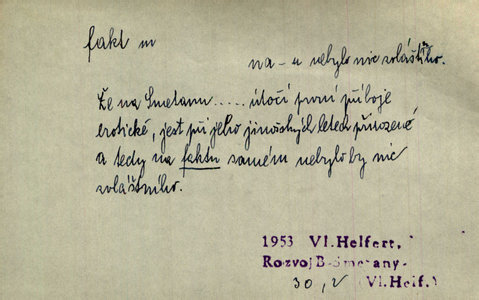 fakt m
na – u nebylo nic zvláštního.
Že na Smetanu ..... útočí první příboje
erotické, jest při jeho jinošských letech přirozené
a tedy na faktu samém nebylo by nic
zvláštního.
1953 Vl. Helfert,
Rozvoj B. Smetany
30, 2 (Vl. Helf.)